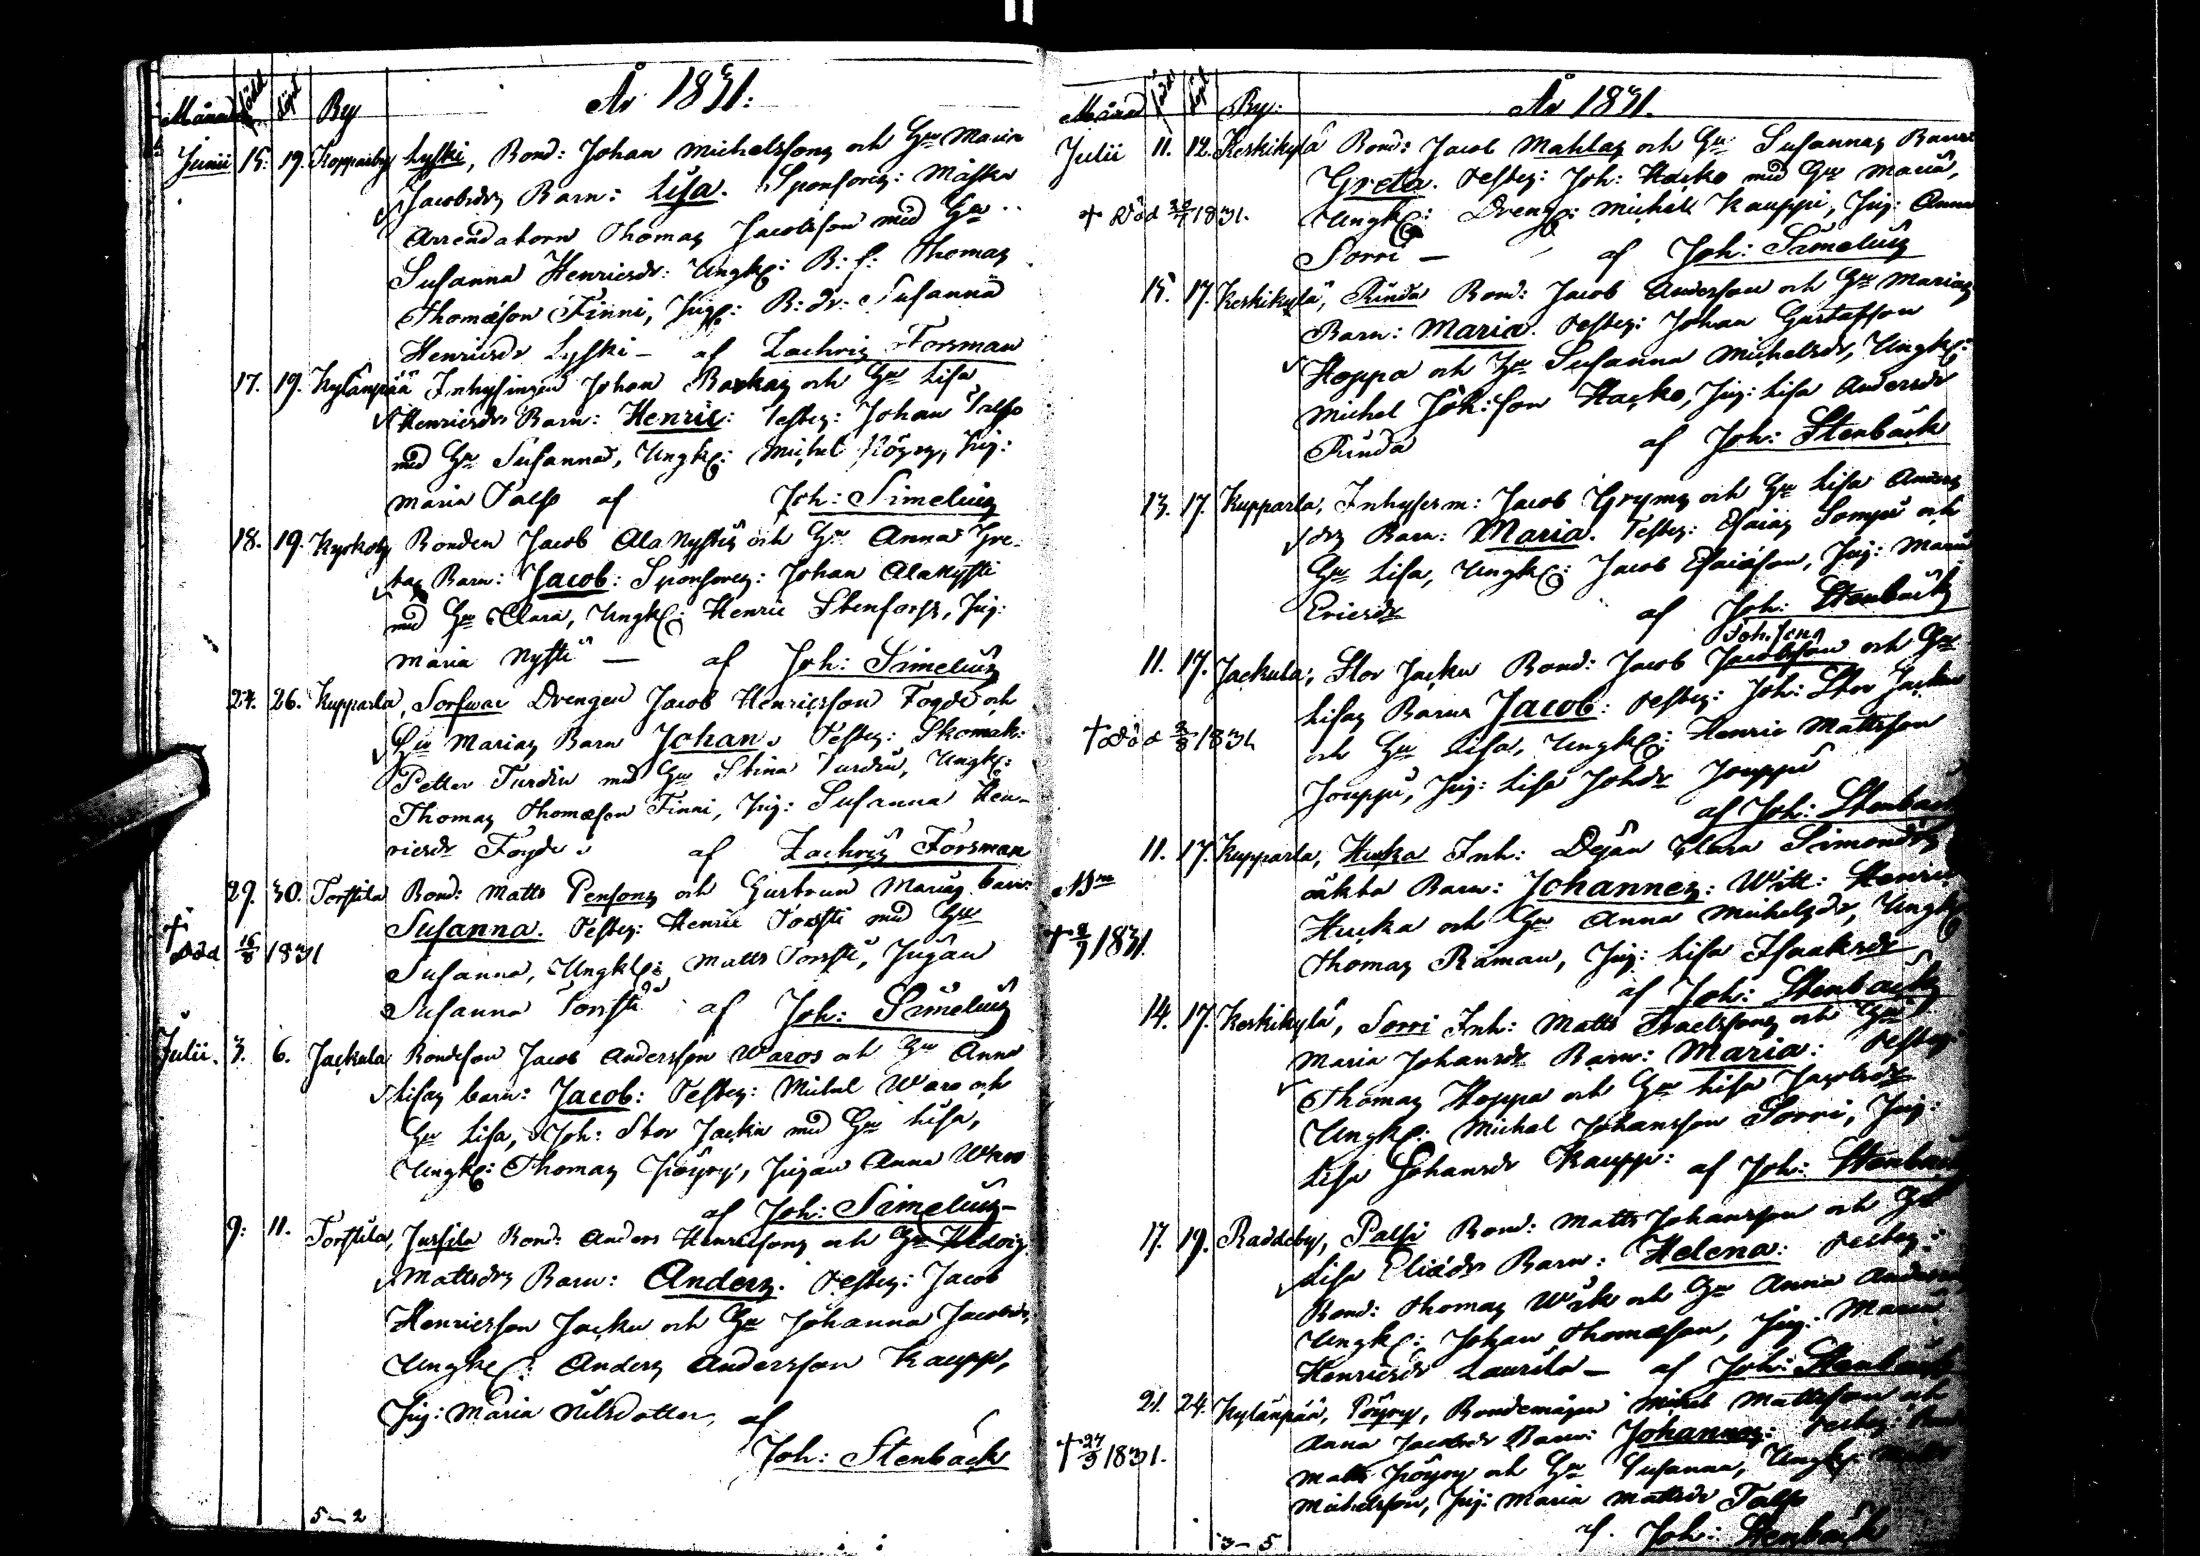 Månad född döpt By År 1831:
Junii 15. 19. Kopparby Lyski, Bond: Johan Michelssons och Hu Maria
Jacobsdrs Barn: Lisa. Sponsores: Måska
Arrendatorn Thomas Jacobsson med Hu
Susanna Henricsdr: Ungk: B: s: Thomas
Thomæson Finni, Pig: B: dr: Susanna
Henricsdr Lyski – af Zachris Forsman
17. 19. Kylänpää Inhysingen Johan Raskas och Hu Lisa
Henricsdrs Barn: Henric: Testes: Johan Talso
med Hu Susanna, Ungk: Michel Pöyry, Pig:
Maria Talso af Joh: Simelius
18. 19. Kyrkoby Bonden Jacob Ala Nystis och Hu Anna Gre-
tas Barn: Jacob: Sponsores: Johan Ala Nysti
med Hu Clara, Ungk: Henric Stenfors, Pig:
Maria Nysti — af Joh: Simelius
24. 26. Kupparla, Sorfwar Drengen Jacob Henricsson Fogde och
Hu Marias Barn Johan. Testes: Skomak:
Petter Turdin med Hu Stina Turdin, Ungk:
Thomas Thomæson Finni, Pig: Susanna Hen-
ricsdr Fogde. af Zachris Forsman
29. 30. Torstila Bond: Matts Pensons och Hustrun Marias barn:
Susanna. Testes: Henric Torsti med Hu
† död 16/8 1831 Susanna, Ungk: Matts Torsti, Pigan
Susanna Torsti af Joh: Simelius
Julii. 3. 6. Jackula Bondeson Jacob Andersson Waros och Hu Anna
Lisas barn: Jacob: Testes: Michel Waro och
Hu Lisa, Joh: Stor Jacku med Hu Lisa,
Ungk: Thomas Pöyry, Pigan Anna Waro
af Joh: Simelius –
9. 11. Torstila, Jussila Bond: Anders Henricsons och Hu Hedvig
Mattsdrs Barn: Anders. Testes: Jacob
Henricsson Jacku och Hu Johanna Jacobsdr,
Ungk: Anders Andersson Kaupp,
Pig: Maria Nilsdotter, af
Joh: Stenbäck
5 – 2
Månad född döpt By: År 1831.
Julii 11. 12. Keskikylä Bond: Jacob Mahlas och Hu Susannas Barn
Greta. Testes: Joh: Hacko med Hu Maria,
† död 22/7 1831. Ungk: Dreng: Michel Kauppi, Pig: Anna
Sorri — af Joh: Simelius
15. 17. Keskikylä, Rinda Bond: Jacob Andersson och Hu Marias
Barn: Maria. Testes: Johan Gustafsson
Hoppa och Hu Susanna Michelsdr, Ungk:
Michel Joh:son Hacko, Pig: Lisa Andersdr
Rinda af Joh: Stenbäck
13. 17. Kupparla, Inhyses m: Jacob Gryms och Hu Lisa Anders
drs Barn: Maria. Testes: Esaias Sompi och
Hu Lisa, Ungk: Jacob Esaiæson, Pig: Maria
Ericsdr af Joh: Stenbäck
Joh.sons
11. 17. Jackula, Stor Jacku Bond: Jacob Jacobsson och Hu
Lisas Barn Jacob: Testes: Joh: Stor Jacku
† död 3/8 1831 och Hu Lisa, Ungk: Henric Mattsson
Jouppi, Pig: Lisa Johsdr Jouppi
af Joh: Stenbäck
11. 17. Kupparla, Hucka Inh: Dejan Clara Simonsdrs
oäkta Barn: Johannes: Witt: Henric
Hucka och Hu Anna Michelsdr, Ungk
† 2/9 1831. Thomas Råman, Pig: Lisa Isaksdr
af Joh: Stenbäck
14. 17. Keskikylä, Sorri Inh: Matts Israelssons och Hu
Maria Johansdr Barn: Maria: Testes:
Thomas Hoppa och Hu Lisa Jacobsdr
Ungk: Michel Johansson Sorri, Pig:
Lisa Johansdr Kauppi: af Joh: Stenbäck
17. 19. Raddeby, Palsi Bond: Matts Johansson och Hu
Lisa Eliædr Barn: Helena: Testes:
Bond: Thomas Wäk och Hu Anna Andersdr
Ungk: Johan Thomæson, Pig: Maria
Henricsdr Laurila – af Joh: Stenbäck
21. 24. Kylänpää, Pöyry, Bondemågen Michel Mattsson och
Anna Jacobsdr Barn: Johannes: Testes:
† 27/9 1831. Matts Pöyry och Hu Susanna, Ungk: Matts
Michelsson, Pig: Maria Mattsdr Talso
af Joh: Stenbäck
3 – 5